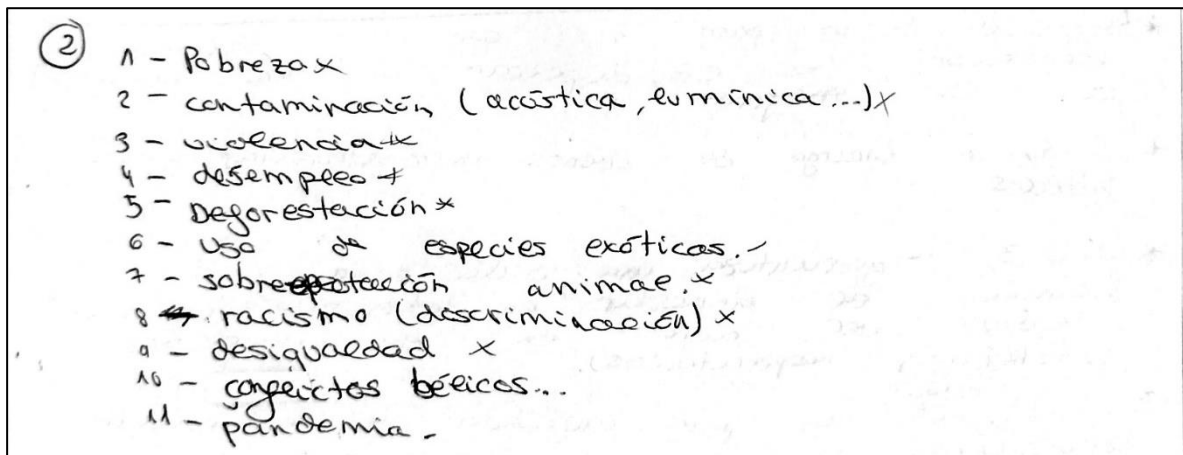 2
1 - Pobreza x
2 - contaminación (acústica, lumínica...) x
3 - violencia x
4 - desempleo x
5 - Deforestación x
6 - Uso de especies exóticas. -
7 - sobreexplotación animal. x
8 - racismo (discriminación) x
9 - desigualdad x
10 - conflictos bélicos...
11 - pandemia.